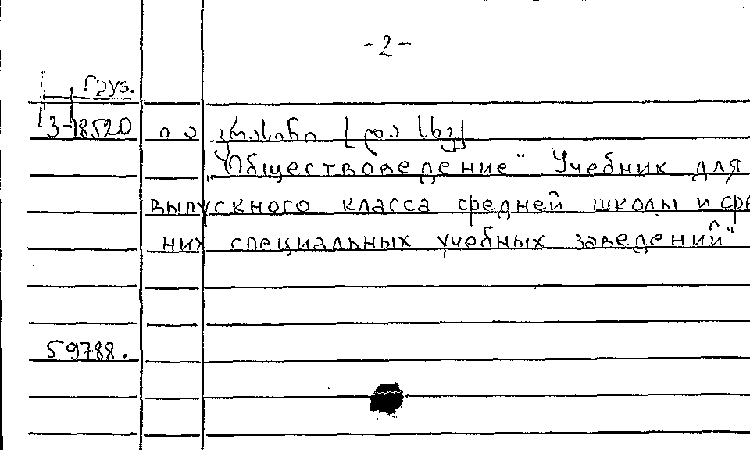 -2-
Груз.
3-18520 და სხვ]
"Обществоведение" Учебник для
выпускного класса средней школы и сре
них специальных учебных заведений"
59788.